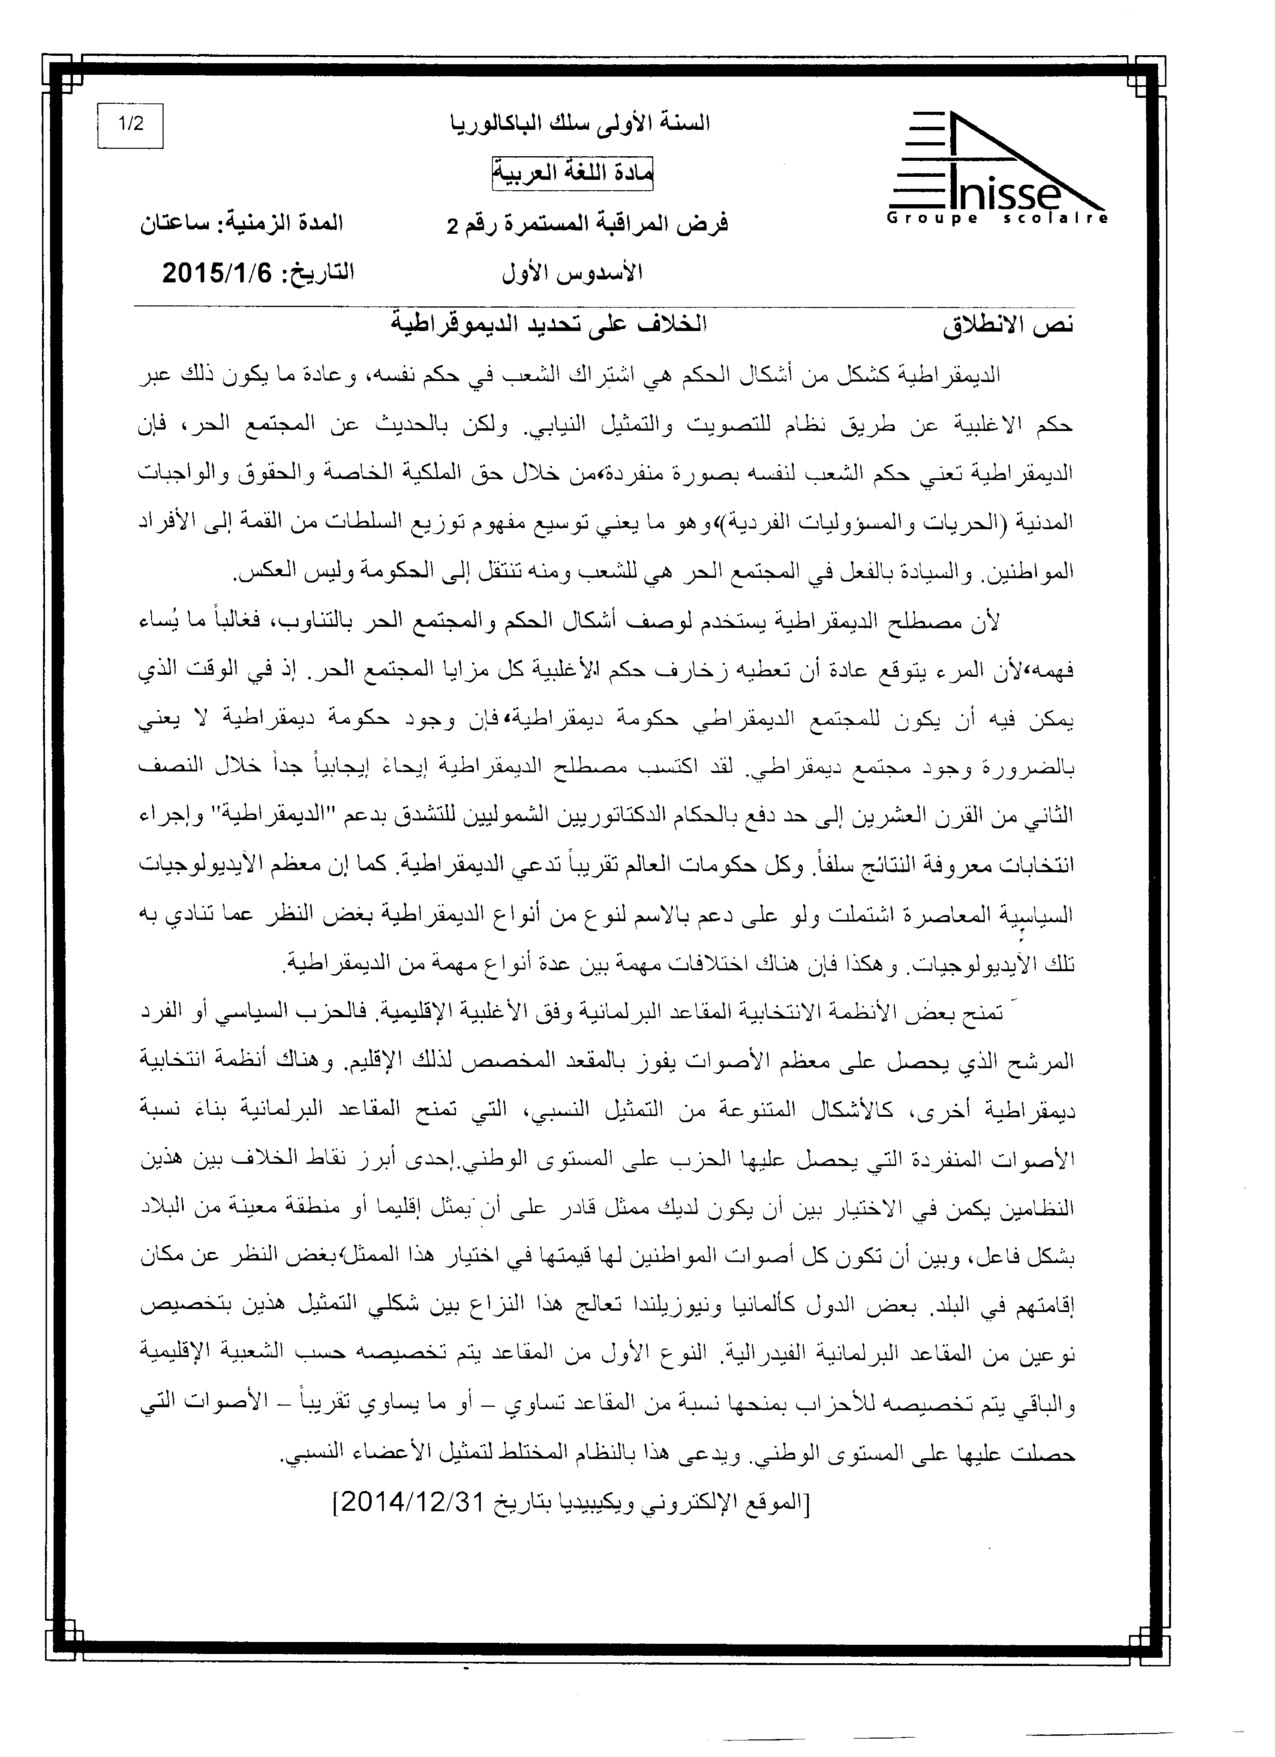 1/2
السنة الأولى سلك الباكالوريا
مادة اللغة العربية
Anisse
Groupe scolaire
فرض المراقبة المستمرة رقم 2
المدة الزمنية: ساعتان
الأسدوس الأول
التاريخ: 2015/1/6
نص الانطلاق
الخلاف على تحديد الديموقراطية
الديمقراطية كشكل من أشكال الحكم هي اشتراك الشعب في حكم نفسه، وعادة ما يكون ذلك عبر
حكم الاغلبية عن طريق نظام للتصويت والتمثيل النيابي. ولكن بالحديث عن المجتمع الحر، فإن
الديمقراطية تعني حكم الشعب لنفسه بصورة منفردة،من خلال حق الملكية الخاصة والحقوق والواجبات
المدنية (الحريات والمسؤوليات الفردية)،وهو ما يعني توسيع مفهوم توزيع السلطات من القمة إلى الأفراد
المواطنين. والسيادة بالفعل في المجتمع الحر هي للشعب ومنه تنتقل إلى الحكومة وليس العكس.
لأن مصطلح الديمقراطية يستخدم لوصف أشكال الحكم والمجتمع الحر بالتناوب، فغالباً ما يُساء
فهمه،لأن المرء يتوقع عادة أن تعطيه زخارف حكم الأغلبية كل مزايا المجتمع الحر. إذ في الوقت الذي
يمكن فيه أن يكون للمجتمع الديمقراطي حكومة ديمقراطية،فإن وجود حكومة ديمقراطية لا يعني
بالضرورة وجود مجتمع ديمقراطي. لقد اكتسب مصطلح الديمقراطية إيحاءً إيجابياً جداً خلال النصف
الثاني من القرن العشرين إلى حد دفع بالحكام الدكتاتوريين الشموليين للتشدق بدعم "الديمقراطية" وإجراء
انتخابات معروفة النتائج سلفاً. وكل حكومات العالم تقريباً تدعي الديمقراطية. كما إن معظم الأيديولوجيات
السياسية المعاصرة اشتملت ولو على دعم بالاسم لنوع من أنواع الديمقراطية بغض النظر عما تنادي به
تلك الأيديولوجيات. وهكذا فإن هناك اختلافات مهمة بين عدة أنواع مهمة من الديمقراطية.
تمنح بعض الأنظمة الانتخابية المقاعد البرلمانية وفق الأغلبية الإقليمية. فالحزب السياسي أو الفرد
المرشح الذي يحصل على معظم الأصوات يفوز بالمقعد المخصص لذلك الإقليم. وهناك أنظمة انتخابية
ديمقراطية أخرى، كالأشكال المتنوعة من التمثيل النسبي، التي تمنح المقاعد البرلمانية بناءَ نسبة
الأصوات المنفردة التي يحصل عليها الحزب على المستوى الوطني.إحدى أبرز نقاط الخلاف بين هذين
النظامين يكمن في الاختيار بين أن يكون لديك ممثل قادر على أن يمثل إقليما أو منطقة معينة من البلاد
بشكل فاعل، وبين أن تكون كل أصوات المواطنين لها قيمتها في اختيار هذا الممثل،بغض النظر عن مكان
إقامتهم في البلد. بعض الدول كألمانيا ونيوزيلندا تعالج هذا النزاع بين شكلي التمثيل هذين بتخصيص
نوعين من المقاعد البرلمانية الفيدرالية. النوع الأول من المقاعد يتم تخصيصه حسب الشعبية الإقليمية
والباقي يتم تخصيصه للأحزاب بمنحها نسبة من المقاعد تساوي – أو ما يساوي تقريباً – الأصوات التي
حصلت عليها على المستوى الوطني. ويدعى هذا بالنظام المختلط لتمثيل الأعضاء النسبي.
[الموقع الإلكتروني ويكيبيديا بتاريخ 2014/12/31]